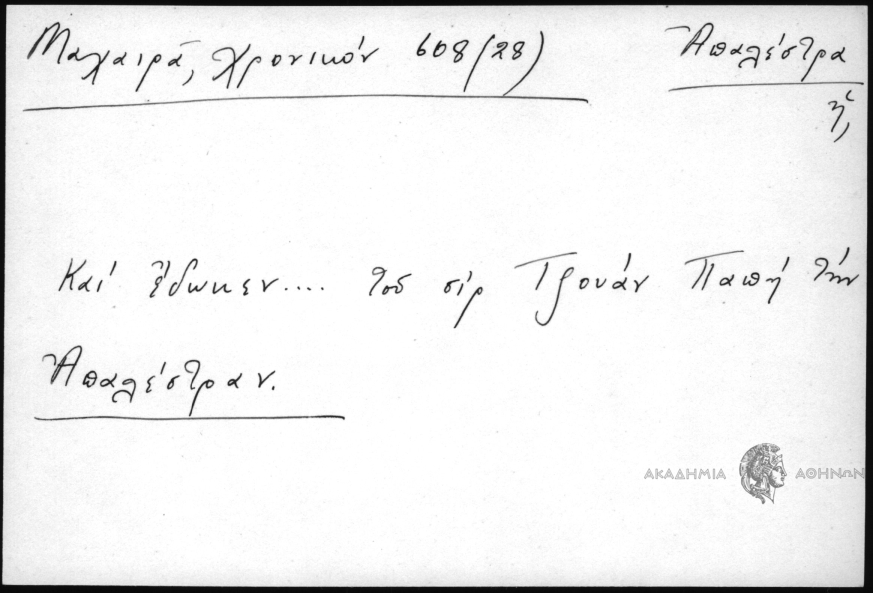 Μαχαιρᾶ, Χρονικόν 608/28)
Ἀπαλέστρα
ἡ,
Καί ἔδωκεν.... τοῦ σίρ Τζουάν Παπή τήν
Ἀπαλέστραν.
ΑΚΑΔΗΜΙΑ ΑΘΗΝΩΝ